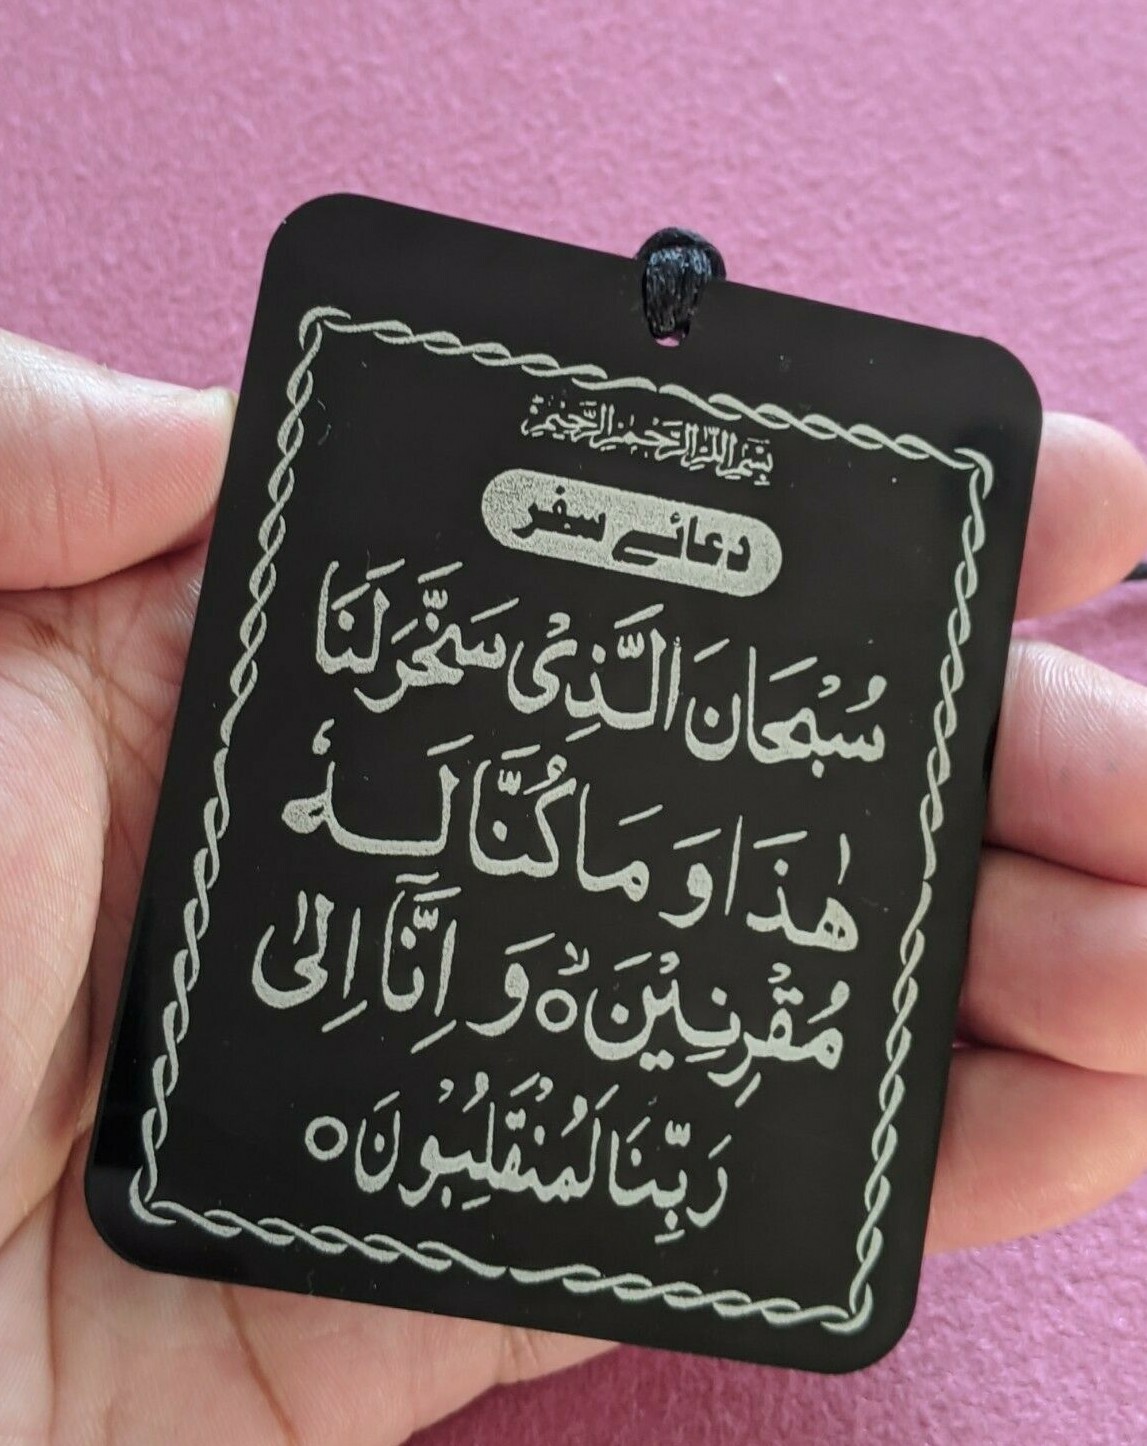 بِسْمِ اللهِ الرَّحْمٰنِ الرَّحِيْمِ
دعائے سفر
سُبْحَانَ الَّذِىْ سَخَّرَ لَنَا
هٰذَا وَ مَا كُنَّا لَـهٗ
مُقْرِنِيْنَ ۙ وَ اِنَّآ اِلٰى
رَبِّنَا لَمُنْقَلِبُوْنَ ۝